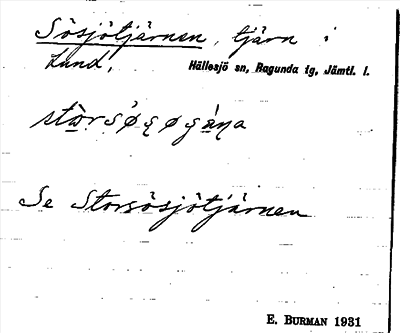 Sösjötjärnen, tjärn i
Lund,
Hällesjö sn, Ragunda tg, Jämtl. l.
Se Storsösjötjärnen
E. BURMAN 1931